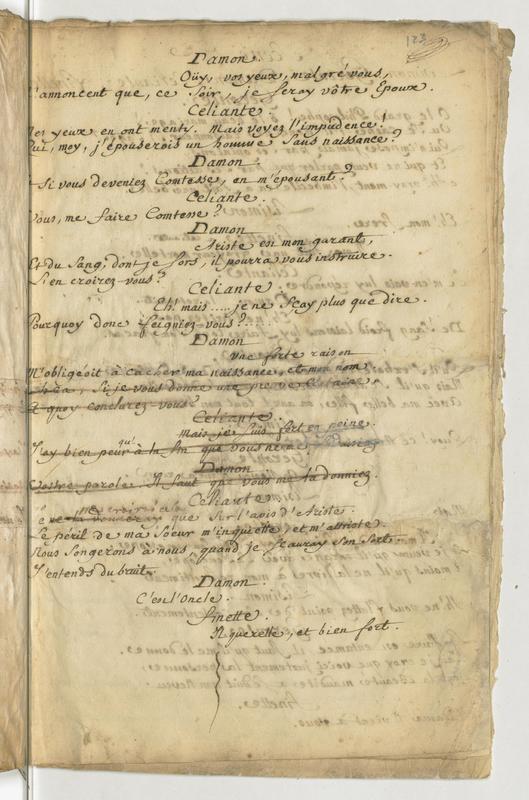 123
Damon.
Oüy, vos yeux, malgré vous,
annoncent que, ce soir, je seray vôtre Epoux.
Celiante.
Mes yeux en ont menty. Mais voyez l'impudence!
Qui, moy, j'épouserois un homme sans naissance?
Damon
Si vous deveniez Comtesse, en m'épousant?
Celiante.
Vous, me faire Comtesse?
Damon
Ariste est mon garant,
Et du Sang, dont je sors, il pourra vous instruire.
L'en croirez-vous?
Celiante.
Eh! mais..... je ne sçay plus que dire.
Pourquoy donc feigniez-vous?
Damon
une forte raison
M'obligeoit à cacher ma naissance, et mon nom
Si je vous donne une preuve
Et quoy conclurez vous?
Celiante.
Mais je suis fort en peine.
J'ay bien peur qu'à la fin que vous ne me
Damon
Vostre parole. Il faut que vous me la donniez.
Celiante
Je ne la donneray que sur l'avis d'Ariste.
Le péril de ma Soeur m'inquiette, et m'attriste.
Nous songerons à nous, quand je sçauray son sort.
J'entends du bruit.
Damon.
C'est l'Oncle.
Finette.
Il querelle, et bien fort.